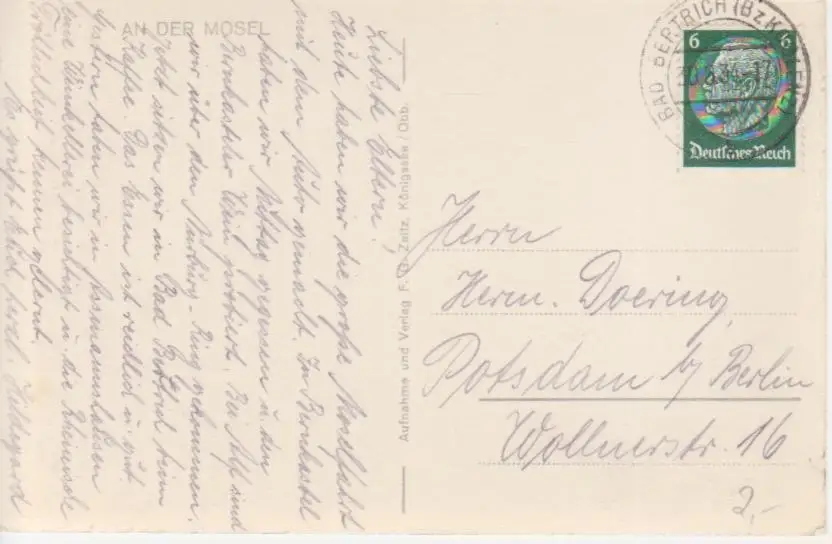 AN DER MOSEL
Liebste Eltern!
Heute haben wir die große Moselfahrt
mit dem Auto gemacht. In Bernkastel
haben wir Mittag gegessen u. den
Bernkasteler Wein probiert. Bei Alf sind
wir über den Nürburg-Ring gekommen.
Jetzt sitzen wir in Bad Bertrich beim
Kaffee. Das Essen ist reichlich u. gut.
Gestern haben wir in Assmannshausen
eine Winkellerei besichtigt u. die Rheinische
Fröhlichkeit kennen gelernt.
Es grüßt Euch herzl. Hildegard
Aufnahme und Verlag F. G. Zeitz, Königssee / Obb.
BAD BERTRICH (BZ KOBLENZ)
6 6
Deutsches Reich
Herrn
Herm. Doering
Potsdam b/ Berlin
Wollnerstr. 16
2,-